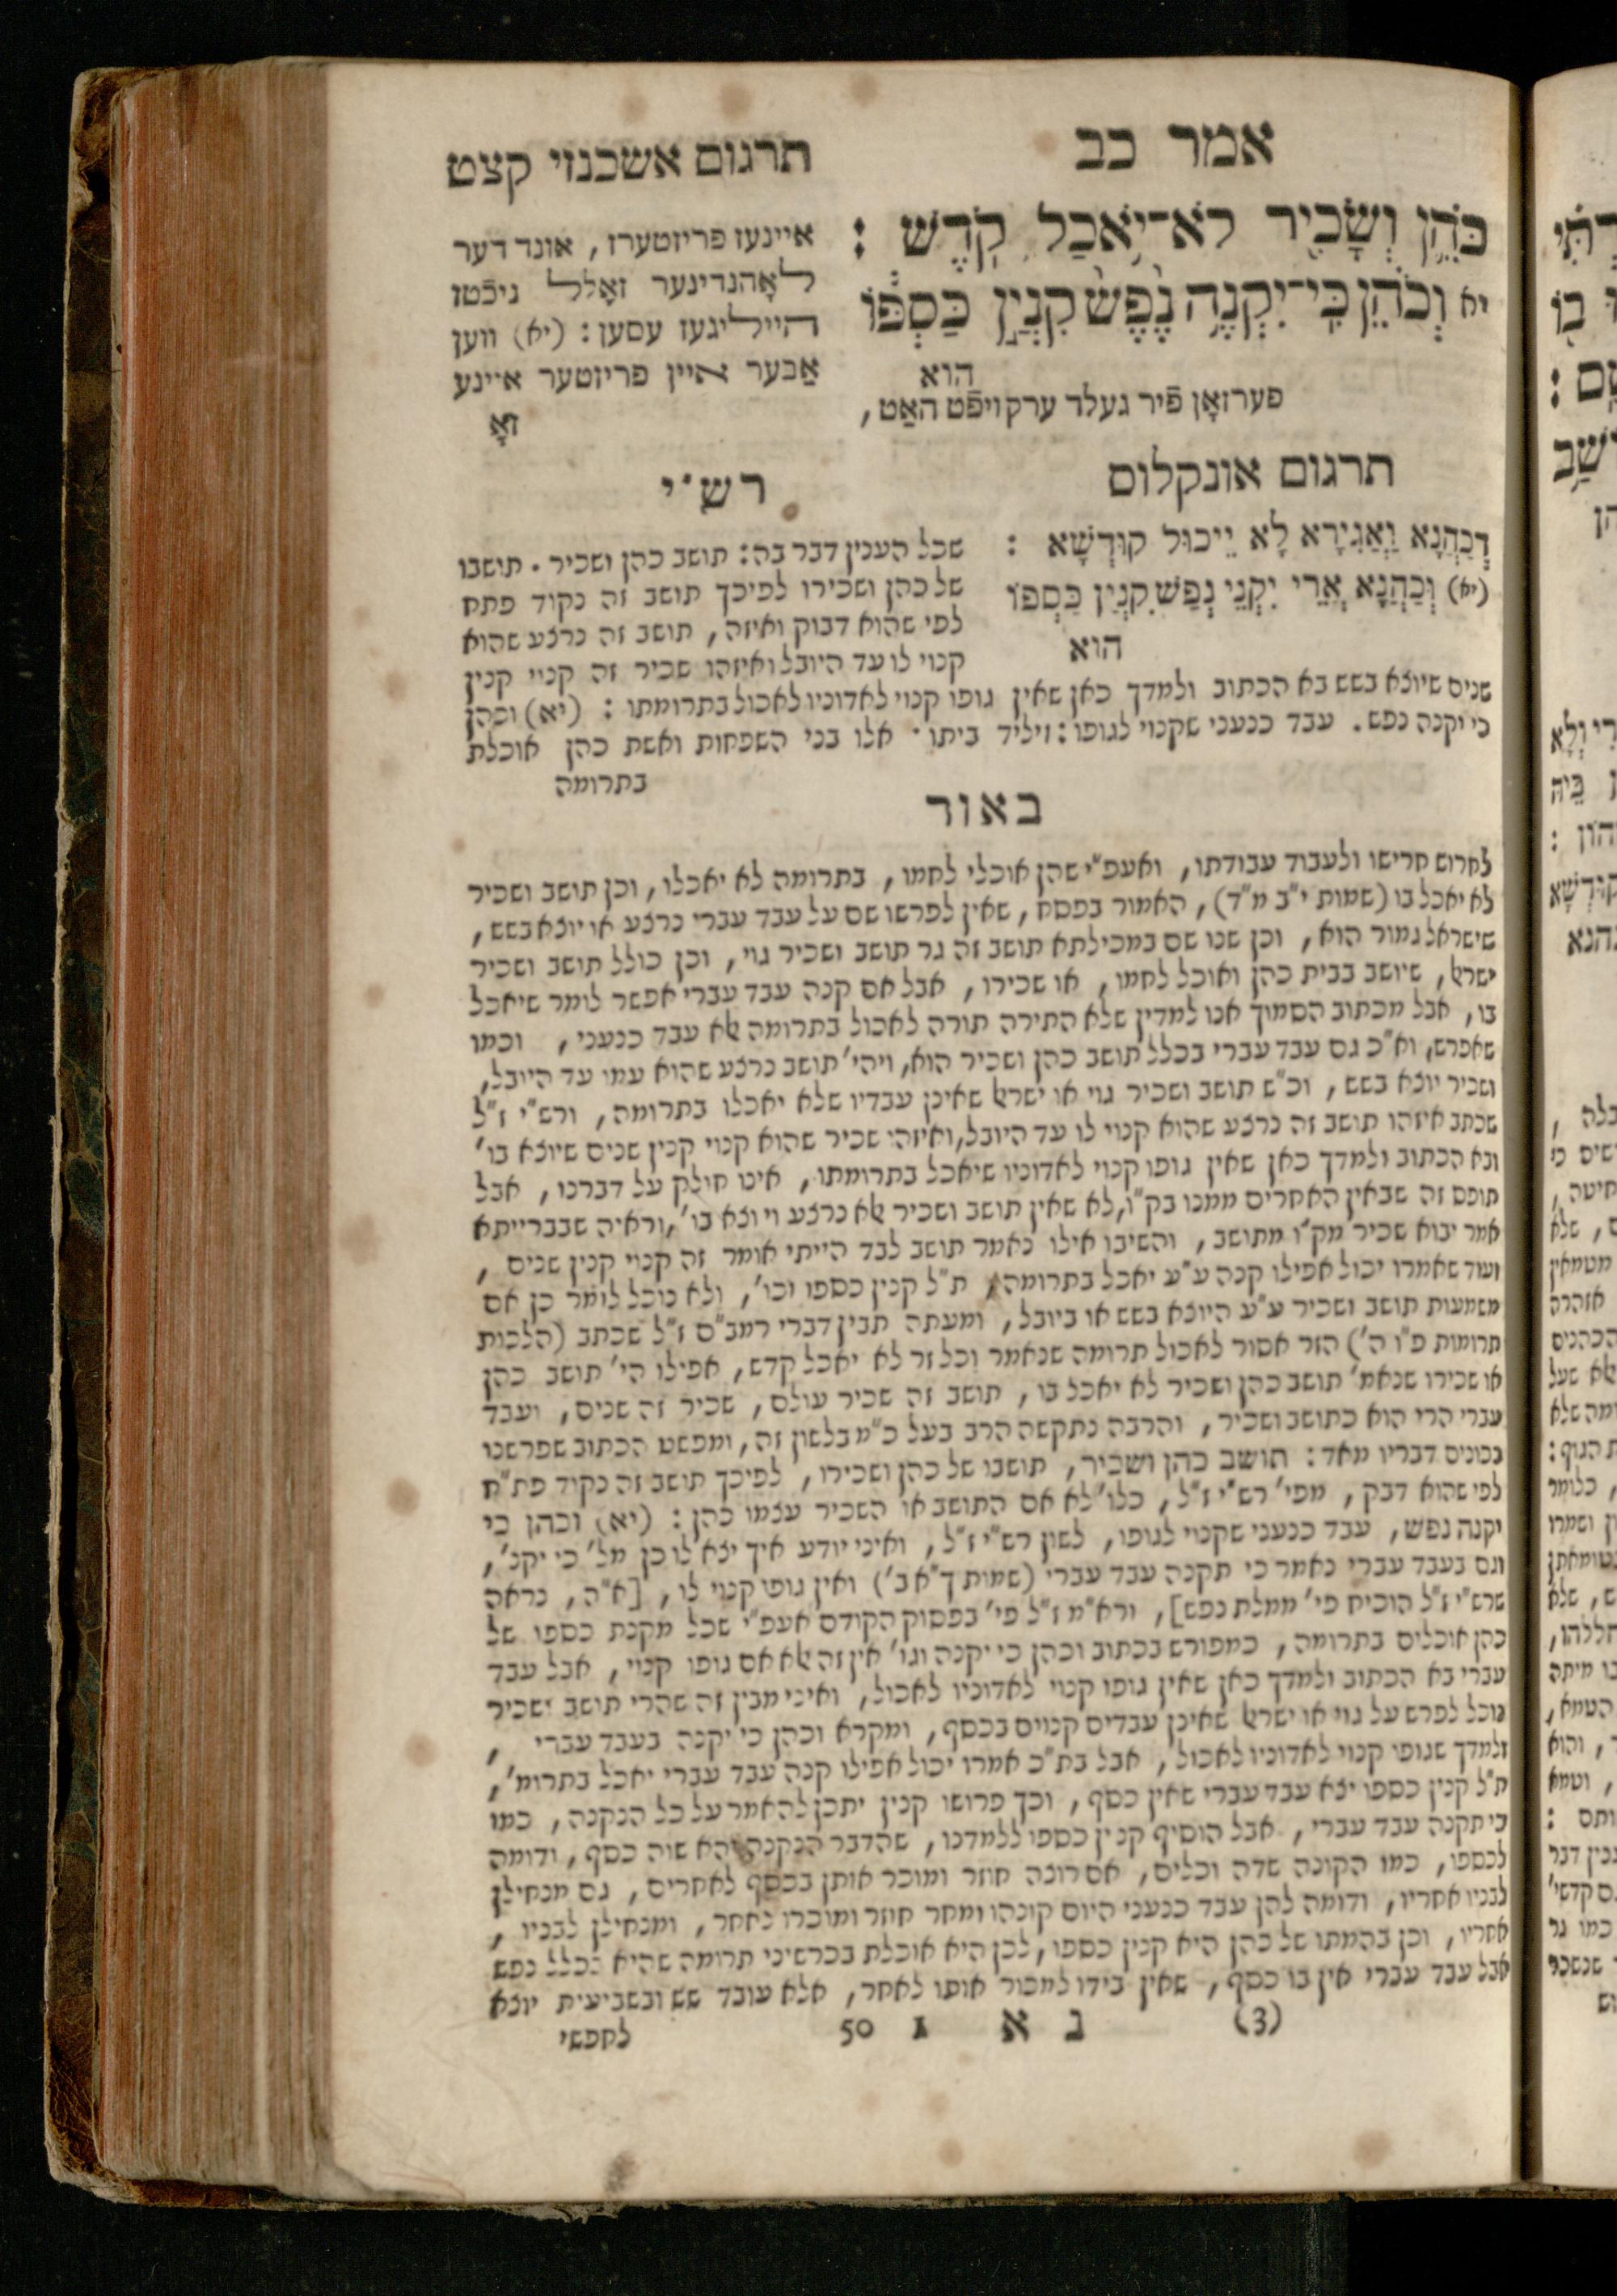 אמר כב
תרגום אשכנזי קצט
כֹּהֵ֛ן וְשָׂכִ֖יר לֹא־יֹ֥אכַל קֹֽדֶשׁ׃
יא וְכֹהֵ֗ן כִּֽי־יִקְנֶ֥ה נֶ֙פֶשׁ֙ קִנְיַ֣ן כַּסְפּ֔וֹ
הוּא
פערזאָן פֿיר געלד ערקויפֿט האַט,
איינעז פריזטערז, אונד דער
לאָהנדינער זאָלל ניכֿטז
הייליגעז עסען: (יא) ווען
אַבער איין פריזטער איינע
זאָ
תרגום אונקלוס
דְכַהֲנָא וַאֲגִירָא לָא יֵיכוּל קוּדְשָׁא :
(יא) וְכַהֲנָא אֲרֵי יִקְנֵי נְפַשׁ קִנְיַן כַּסְפּוֹ
הוא
רש"י
שכל הענין דבר בה: תושב כהן ושכיר. תושבו
של כהן ושכירו לפיכך תושב זה נקוד פתח
לפי שהוא דבוק ואיזה, תושב זה נרצע שהוא
קנוי לו עד היובל ואיזהו שכיר זה קנוי קנין
שנים שיוצא בשש בא הכתוב ולמדך כאן שאין גופו קנוי לאדוניו לאכול בתרומתו : (יא) וכהן
כי יקנה נפש. עבד כנעני שקנוי לגופו: ויליד ביתו. אלו בני השפחות ואשת כהן אוכלת
בתרומה
באור
לחרוש חרישו ולעבוד עבודתו, ואעפ"י שהן אוכלי לחמו, בתרומה לא יאכלו, וכן תושב ושכיר
לא יאכל בו (שמות י"ב מ"ד), האמור בפסח, שאין לפרשו שם על עבד עברי נרצע או יוצא בשש,
שישראל גמור הוא, וכן שנו שם במכילתא תושב זה גר תושב ושכיר גוי, וכן כולל תושב ושכיר
ישראל, שיושב בבית כהן ואוכל לחמו, או שכירו, אבל אם קנה עבד עברי אפשר לומר שיאכל
בו, אבל מכתוב הסמוך אנו למדין שלא התירה תורה לאכול בתרומה אלא עבד כנעני, וכמו
שאפרש, וא"כ גם עבד עברי בכלל תושב כהן ושכיר הוא, ויהי' תושב נרצע שהוא עמו עד היובל,
ושכיר יוצא בשש, וכ"ש תושב ושכיר גוי או ישראל שאינן עבדיו שלא יאכלו בתרומה, ורש"י ז"ל
שכתב איזהו תושב זה נרצע שהוא קנוי לו עד היובל, ואיזהו שכיר שהוא קנוי קנין שנים שיוצא בו'
ובא הכתוב ולמדך כאן שאין גופו קנוי לאדוניו שיאכל בתרומתו, אינו חולק על דברנו, אבל
תופס זה שבאין האחרים ממנו בק"ו, לא שאין תושב ושכיר אלא נרצע ויוצא בו', וראיה שבברייתא
אמר יבוא שכיר מק"ו מתושב, והשיבו אילו נאמר תושב לבד הייתי אומר זה קנוי קנין שנים,
ועוד שאמרו יכול אפילו קנה ע"ע יאכל בתרומה, ת"ל קנין כספו וכו', ולא נוכל לומר כן אם
משמעות תושב ושכיר ע"ע היוצא בשש או ביובל, ומעתה תבין דברי רמב"ם ז"ל שכתב (הלכות
תרומות פ"ו ה') הזר אסור לאכול תרומה שנאמר וכל זר לא יאכל קדש, אפילו הי' תושב כהן
או שכירו שנאמ' תושב כהן ושכיר לא יאכל בו, תושב זה שכיר עולם, שכיר זה שנים, ועבד
עברי הרי הוא כתושב ושכיר, והרבה נתקשה הרב בעל כ"מ בלשון זה, ומפשט הכתוב שפרשנו
נכונים דבריו מאד: תושב כהן ושכיר, תושבו של כהן ושכירו, לפיכך תושב זה נקוד פת"ח
לפי שהוא דבק, מפי' רש"י ז"ל, כלו' לא אם התושב או השכיר עצמו כהן: (יא) וכהן כי
יקנה נפש, עבד כנעני שקנוי לגופו, לשון רש"י ז"ל, ואיני יודע איך יצא לו כן מל' כי יקנ',
וגם בעבד עברי נאמר כי תקנה עבד עברי (שמות ך"א ב') ואין גופו קנוי לו, [א"ה, נראה
שרש"י ז"ל הוכיח פי' ממלת נפש], ורא"מ ז"ל פי' בפסוק הקודם אעפ"י שכל מקנת כספו של
כהן אוכלים בתרומה, כמפורש בכתוב וכהן כי יקנה וגו' אין זה אלא אם גופו קנוי, אבל עבד
עברי בא הכתוב ולמדך כאן שאין גופו קנוי לאדוניו לאכול, ואיני מבין זה שהרי תושב ושכיר
נוכל לפרש על גוי או ישראל שאינן עבדים קנוים בכסף, ומקרא וכהן כי יקנה בעבד עברי,
ולמדך שגופו קנוי לאדוניו לאכול, אבל בת"כ אמרו יכול אפילו קנה עבד עברי יאכל בתרומ',
ת"ל קנין כספו יצא עבד עברי שאין כסף, וכך פרושו קנין יתכן להאמר על כל הנקנה, כמו
כי תקנה עבד עברי, אבל הוסיף קנין כספו ללמדנו, שהדבר הנקנה יהא שוה כסף, ודומה
לכספו, כמו הקונה שדה וכלים, אם רוצה חוזר ומוכר אותן בכסף לאחרים, גם מנחילן
לבניו אחריו, ודומה להן עבד כנעני היום קונהו ומחר חוזר ומוכרו לאחר, ומנחילן לבניו
אחריו, וכן בהמתו של כהן היא קנין כספו, לכן היא אוכלת בכרשיני תרומה שהיא בכלל נפש
אבל עבד עברי אין בו כסף, שאין בידו למכור אותו לאחר, אלא עובד שש ובשביעית יוצא
לחפשי
(3) נ א 1 50